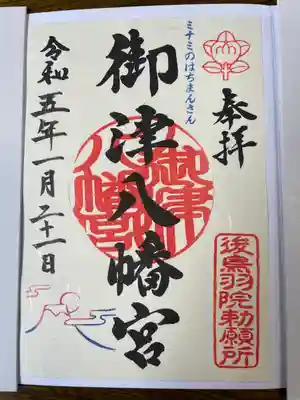 奉拝
ミナミのはちまんさん
御津八幡宮
後鳥羽院勅願所
令和五年一月二十一日